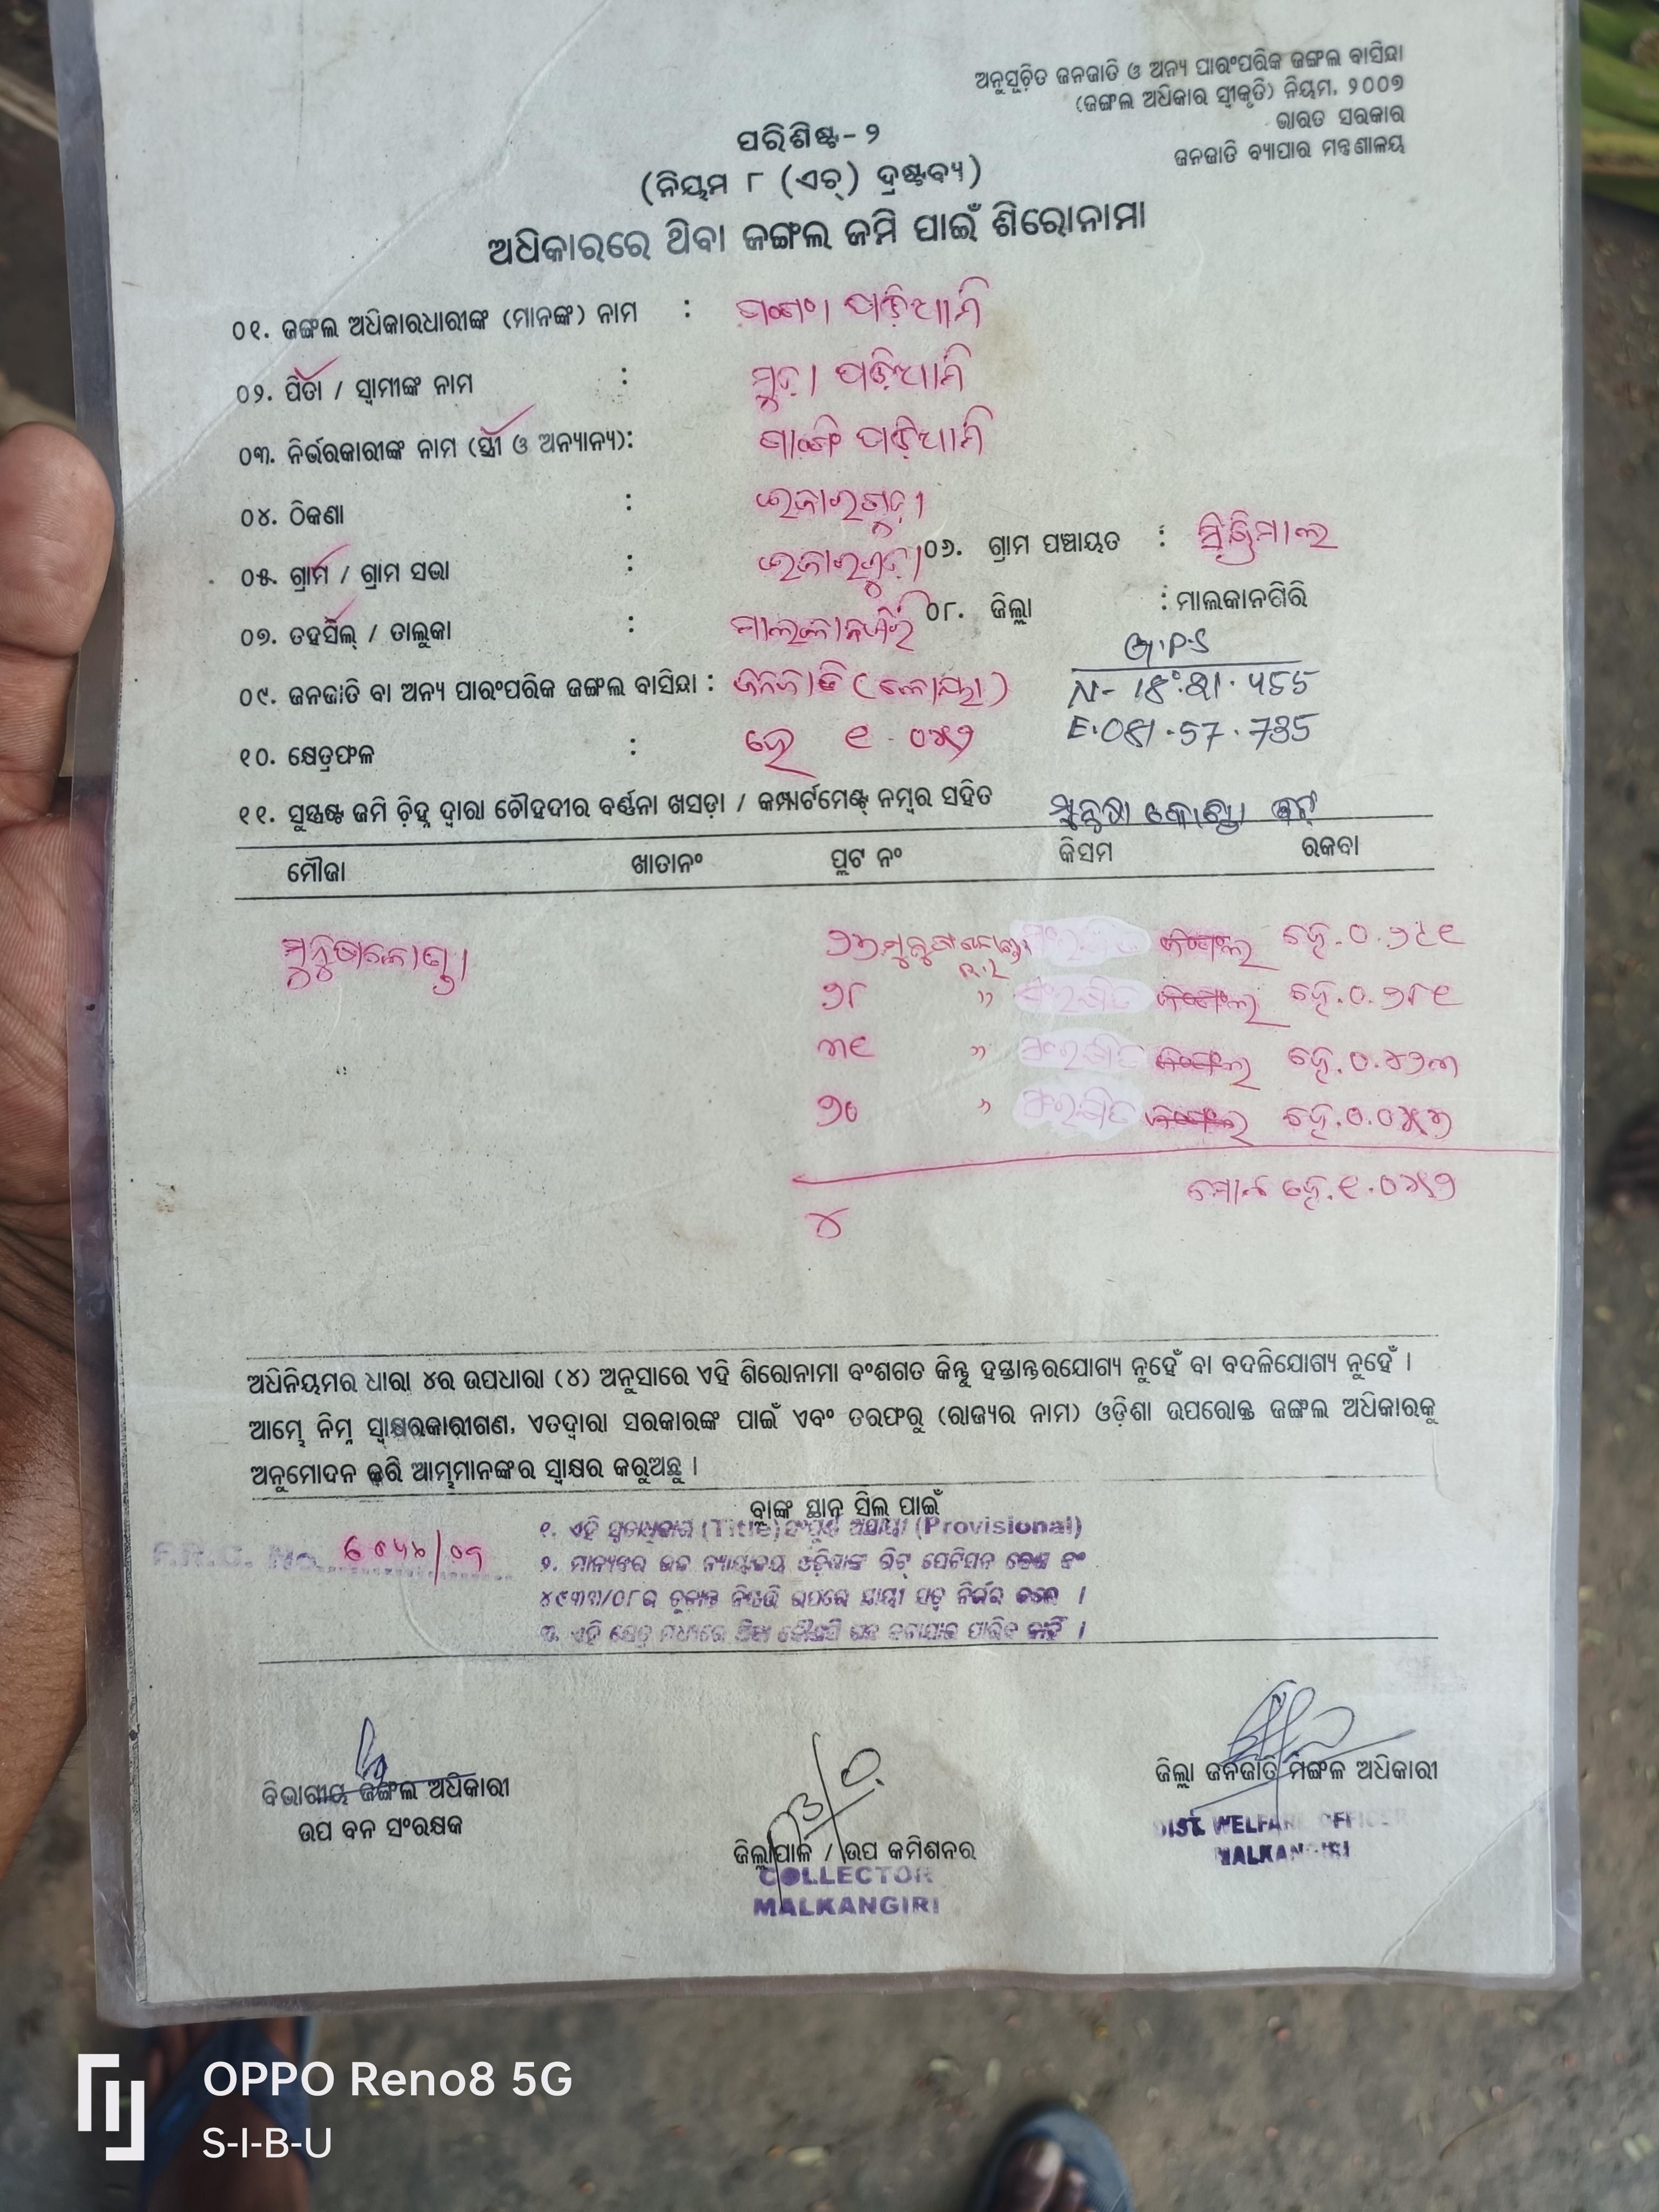 ଅନୁସୂଚିତ ଜନଜାତି ଓ ଅନ୍ୟ ପାରଂପରିକ ଜଙ୍ଗଲ ବାସିନ୍ଦା
(ଜଙ୍ଗଲ ଅଧିକାର ସ୍ୱୀକୃତି) ନିୟମ, ୨୦୦୭
ଭାରତ ସରକାର
ଜନଜାତି ବ୍ୟାପାର ମନ୍ତ୍ରଣାଳୟ
ପରିଶିଷ୍ଟ-୨
(ନିୟମ ୮ (ଏଚ୍) ଦ୍ରଷ୍ଟବ୍ୟ)
ଅଧିକାରରେ ଥିବା ଜଙ୍ଗଲ ଜମି ପାଇଁ ଶିରୋନାମା
୦୧. ଜଙ୍ଗଲ ଅଧିକାରଧାରୀଙ୍କ (ମାନଙ୍କ) ନାମ : ପଡ଼ିଆମି
୦୨. ପିତା / ସ୍ୱାମୀଙ୍କ ନାମ : ମୁଦା ପଡ଼ିଆମି
୦୩. ନିର୍ଭରକାରୀଙ୍କ ନାମ (ସ୍ତ୍ରୀ ଓ ଅନ୍ୟାନ୍ୟ): ପଡ଼ିଆମି
୦୪. ଠିକଣା :
୦୫. ଗ୍ରାମ / ଗ୍ରାମ ସଭା :
୦୬. ଗ୍ରାମ ପଞ୍ଚାୟତ :
୦୭. ତହସିଲ୍ / ତାଲୁକା : ମାଲକାନଗିରି
୦୮. ଜିଲ୍ଲା : ମାଲକାନଗିରି
୦୯. ଜନଜାତି ବା ଅନ୍ୟ ପାରଂପରିକ ଜଙ୍ଗଲ ବାସିନ୍ଦା : ଜନଜାତି (କୋୟା)
G.P.S
N- 18°.21.455
E.081.57.735
୧୦. କ୍ଷେତ୍ରଫଳ : ହେ ୧.୦୪୨
୧୧. ସୁସ୍ପଷ୍ଟ ଜମି ଚିହ୍ନ ଦ୍ୱାରା ଚୌହଦୀର ବର୍ଣ୍ଣନା ଖସଡ଼ା / କମ୍ପାର୍ଟମେଣ୍ଟ୍ ନମ୍ବର ସହିତ
ମୌଜା ଖାତାନଂ ପ୍ଲଟ ନଂ କିସମ ରକବା
୨୮ " ହେ.୦.୨୮୧
୩୧ " ହେ.୦.୪୨୩
୨୦ "
ମୋଟ ହେ.୧.୦୪୨
୪
ଅଧିନିୟମର ଧାରା ୪ର ଉପଧାରା (୪) ଅନୁସାରେ ଏହି ଶିରୋନାମା ବଂଶଗତ କିନ୍ତୁ ହସ୍ତାନ୍ତରଯୋଗ୍ୟ ନୁହେଁ ବା ବଦଳିଯୋଗ୍ୟ ନୁହେଁ ।
ଆମ୍ଭେ ନିମ୍ନ ସ୍ୱାକ୍ଷରକାରୀଗଣ, ଏତଦ୍ୱାରା ସରକାରଙ୍କ ପାଇଁ ଏବଂ ତରଫରୁ (ରାଜ୍ୟର ନାମ) ଓଡ଼ିଶା ଉପରୋକ୍ତ ଜଙ୍ଗଲ ଅଧିକାରକୁ
ଅନୁମୋଦନ କରି ଆମ୍ଭମାନଙ୍କର ସ୍ୱାକ୍ଷର କରୁଅଛୁ ।
ବ୍ଲାଙ୍କ ସ୍ଥାନ ସିଲ ପାଇଁ
୧. ଏହି (Title) ଅସ୍ଥାୟୀ (Provisional)
F.R.C. No
୨. ମାନ୍ୟବର ଉଚ୍ଚ ନ୍ୟାୟାଳୟ ଓଡ଼ିଶାଙ୍କ ରିଟ୍ ପେଟିସନ କେଶ ନଂ
୪୯୩୩/୦୮ର ଚୂଡ଼ାନ୍ତ ନିଷ୍ପତ୍ତି ଉପରେ ନିର୍ଭର କରେ ।
୩. ଏହି କ୍ଷେତ୍ର ମଧ୍ୟରେ ଥିବା କୌଣସି ଗଛ କଟାଯାଇ ପାରିବ ନାହିଁ ।
ବିଭାଗୀୟ ଜଙ୍ଗଲ ଅଧିକାରୀ
ଉପ ବନ ସଂରକ୍ଷକ
ଜିଲ୍ଲାପାଳ / ଉପ କମିଶନର
COLLECTOR
MALKANGIRI
ଜିଲ୍ଲା ଜନଜାତି ମଙ୍ଗଳ ଅଧିକାରୀ
DIST. WELFARE OFFICER
MALKANGIRI
OPPO Reno8 5G
S-I-B-U